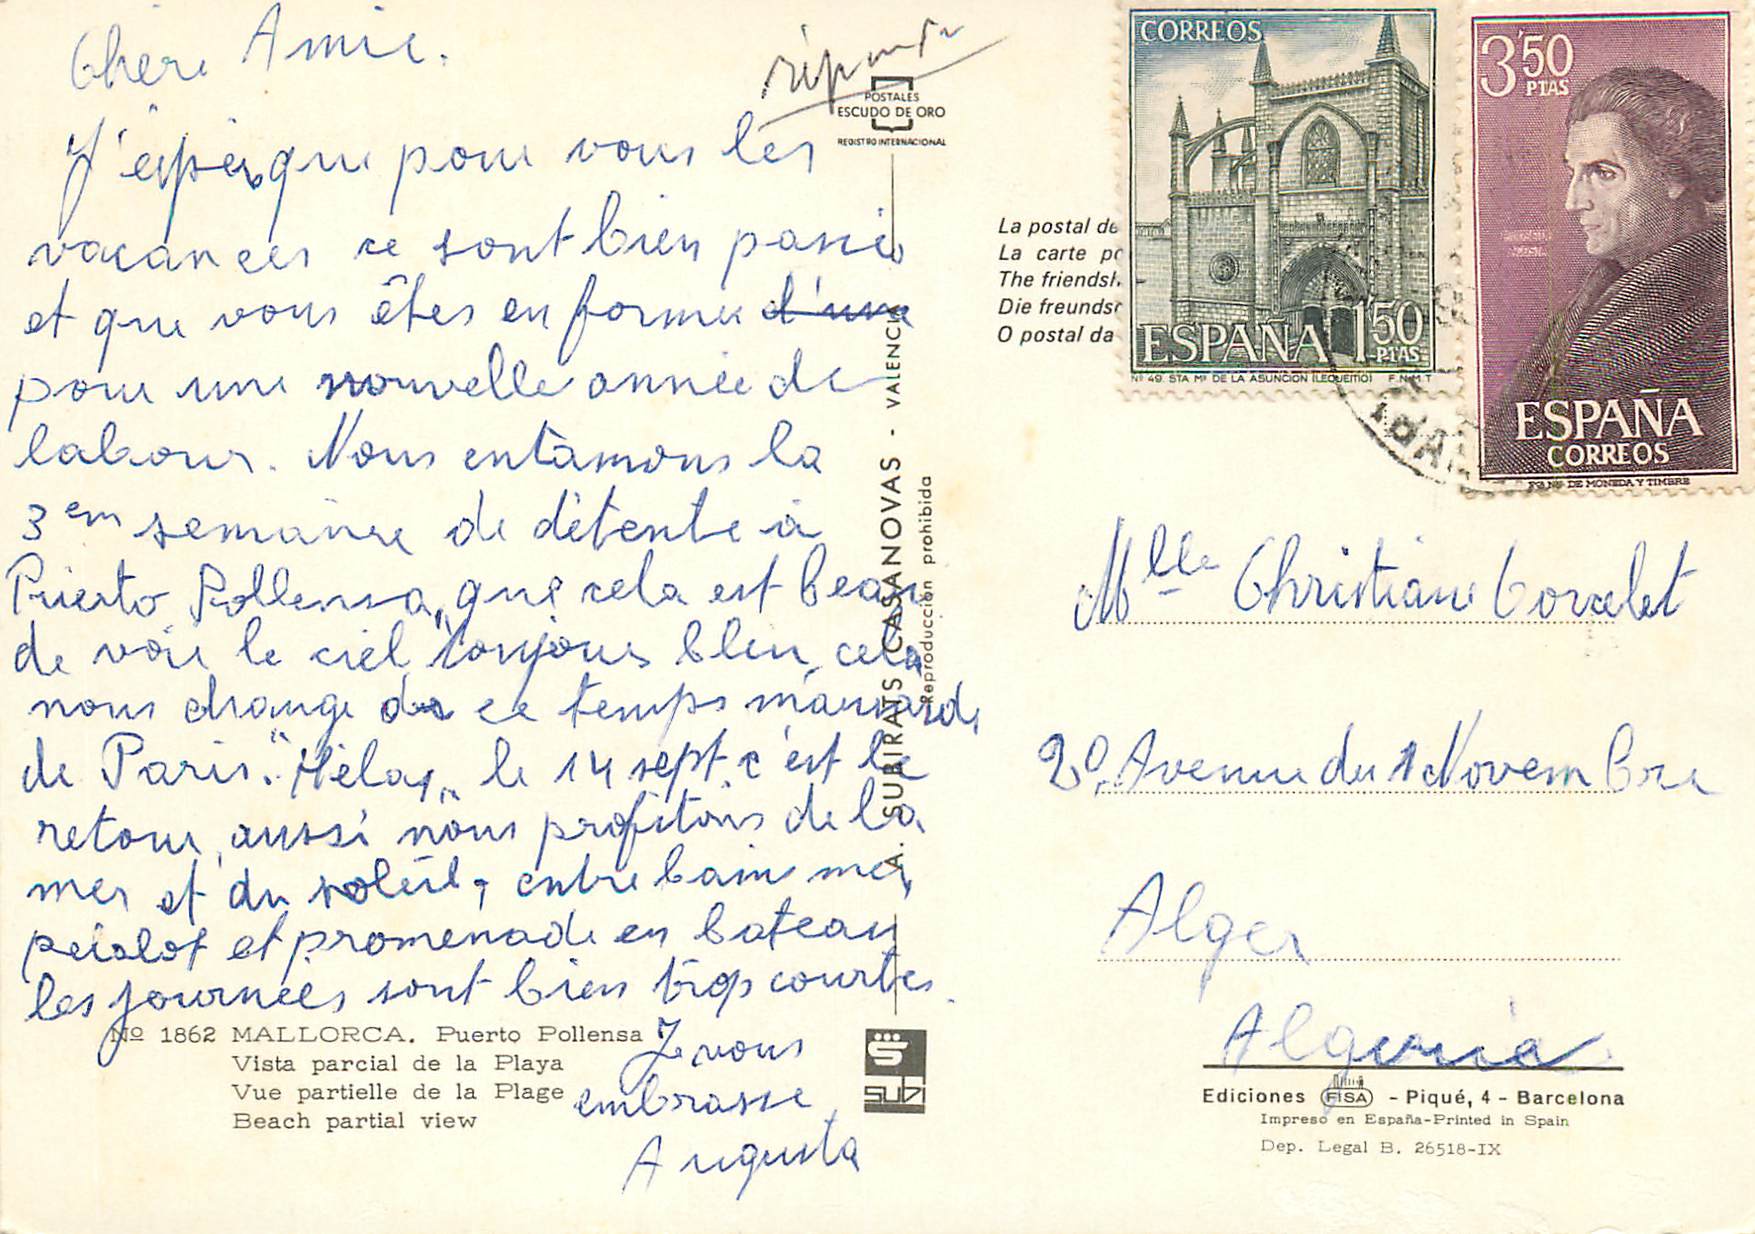 Chère Amie.
J'espère que pour vous les
vacances se sont bien passées
et que vous êtes en forme d'une
pour une nouvelle année de
labour. Nous entamons la
3em semaine de détente à
Puerto Pollensa, que cela est beau
de voir le ciel toujours bleu, cela
nous change de ce temps maussade
de Paris. "Hélas" le 14 sept. c'est le
retour, aussi nous profitons de la
mer et du soleil, entre bain mer,
pédalot et promenade en bateau
les journées sont bien trop courtes.
Je vous
embrasse,
Augusta
réponds
POSTALES
ESCUDO DE ORO
REGISTRO INTERNACIONAL
A. SUBIRATS CASANOVAS - VALENCIA
Reproducción prohibida
Nº 1862 MALLORCA. Puerto Pollensa
Vista parcial de la Playa
Vue partielle de la Plage
Beach partial view
SUBI
La postal de
La carte po
The friendsh
Die freundsc
O postal da
CORREOS
ESPAÑA 1'50
PTAS
Nº 49. STA Mª DE LA ASUNCION (LEQUEITIO) F.N.M.T
3'50
PTAS
ESPAÑA
CORREOS
DE MONEDA Y TIMBRE
Mlle Christiane
20, Avenue du 1 Novembre
Alger
Algeria
Ediciones FISA - Piqué, 4 - Barcelona
Impreso en España-Printed in Spain
Dep. Legal B. 26518-IX